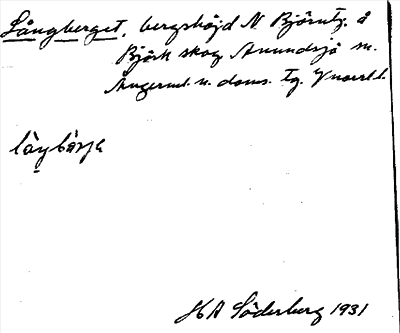 Långberget, bergshöjd N Björntj. å
Björk skog Anundsjö sn.
Ångerml. n. doms. tg. V norrl. l.
HA Söderberg 1931